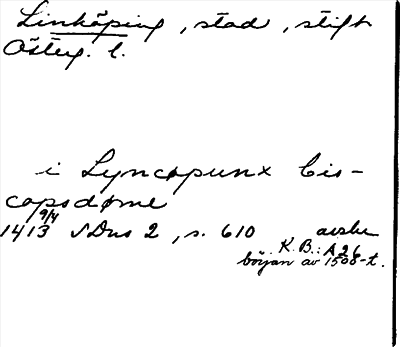 Linköping, stad, stift
Österg. l.
i Lyncopunx bis-
copsdøme
9/4
1413 SDns 2, s. 610 avskr.
K. B.: A 26
början av 1500-t.